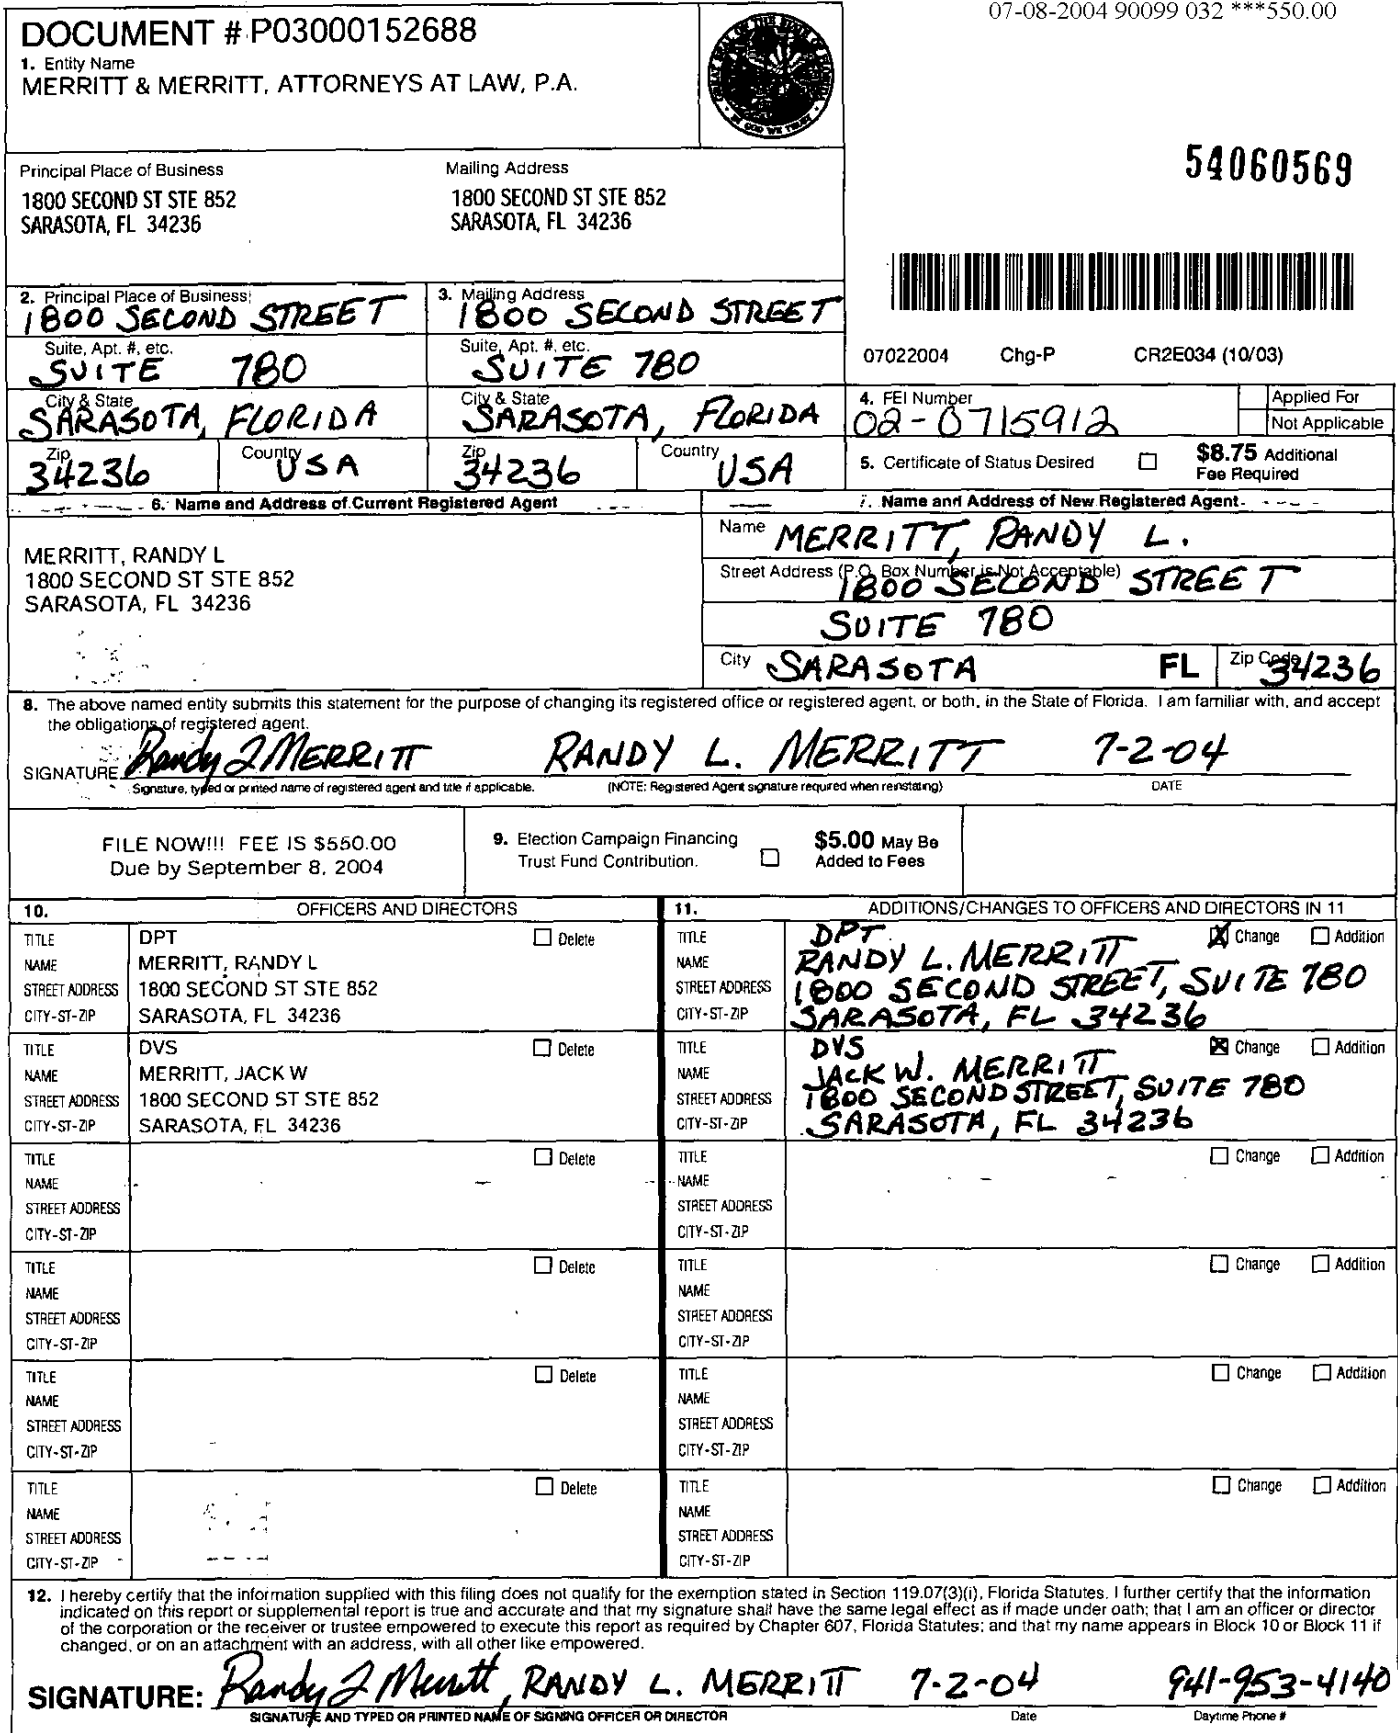 07-08-2004 90099 032 ***550.00
DOCUMENT # P03000152688
1. Entity Name
MERRITT & MERRITT, ATTORNEYS AT LAW, P.A.
IN GOD WE TRUST
54060569
Principal Place of Business
1800 SECOND ST STE 852
SARASOTA, FL 34236
Mailing Address
1800 SECOND ST STE 852
SARASOTA, FL 34236
2. Principal Place of Business
1800 SECOND STREET
Suite, Apt. #, etc.
SUITE 780
City & State
SARASOTA, FLORIDA
Zip
34236
Country
USA
3. Mailing Address
1800 SECOND STREET
Suite, Apt. #, etc.
SUITE 780
City & State
SARASOTA, FLORIDA
Zip
34236
Country
USA
07022004 Chg-P CR2E034 (10/03)
4. FEI Number
02-0715912
Applied For
Not Applicable
5. Certificate of Status Desired
$8.75 Additional
Fee Required
6. Name and Address of Current Registered Agent
MERRITT, RANDY L
1800 SECOND ST STE 852
SARASOTA, FL 34236
7. Name and Address of New Registered Agent
Name MERRITT, RANDY L.
Street Address (P.O. Box Number is Not Acceptable)
1800 SECOND STREET
SUITE 780
City SARASOTA FL Zip Code 34236
8. The above named entity submits this statement for the purpose of changing its registered office or registered agent, or both, in the State of Florida. I am familiar with, and accept
the obligations of registered agent.
SIGNATURE Randy L MERRITT RANDY L. MERRITT 7-2-04
Signature, typed or printed name of registered agent and title if applicable. (NOTE: Registered Agent signature required when reinstating) DATE
FILE NOW!!! FEE IS $550.00
Due by September 8, 2004
9. Election Campaign Financing
Trust Fund Contribution.
$5.00 May Be
Added to Fees
10. OFFICERS AND DIRECTORS
TITLE DPT Delete
NAME MERRITT, RANDY L
STREET ADDRESS 1800 SECOND ST STE 852
CITY-ST-ZIP SARASOTA, FL 34236
TITLE DVS Delete
NAME MERRITT, JACK W
STREET ADDRESS 1800 SECOND ST STE 852
CITY-ST-ZIP SARASOTA, FL 34236
TITLE Delete
NAME
STREET ADDRESS
CITY-ST-ZIP
TITLE Delete
NAME
STREET ADDRESS
CITY-ST-ZIP
TITLE Delete
NAME
STREET ADDRESS
CITY-ST-ZIP
TITLE Delete
NAME
STREET ADDRESS
CITY-ST-ZIP
11. ADDITIONS/CHANGES TO OFFICERS AND DIRECTORS IN 11
TITLE DPT X Change Addition
NAME RANDY L. MERRITT
STREET ADDRESS 1800 SECOND STREET, SUITE 780
CITY-ST-ZIP SARASOTA, FL 34236
TITLE DVS X Change Addition
NAME JACK W. MERRITT
STREET ADDRESS 1800 SECOND STREET, SUITE 780
CITY-ST-ZIP SARASOTA, FL 34236
TITLE Change Addition
NAME
STREET ADDRESS
CITY-ST-ZIP
TITLE Change Addition
NAME
STREET ADDRESS
CITY-ST-ZIP
TITLE Change Addition
NAME
STREET ADDRESS
CITY-ST-ZIP
TITLE Change Addition
NAME
STREET ADDRESS
CITY-ST-ZIP
12. I hereby certify that the information supplied with this filing does not qualify for the exemption stated in Section 119.07(3)(i), Florida Statutes. I further certify that the information
indicated on this report or supplemental report is true and accurate and that my signature shall have the same legal effect as if made under oath; that I am an officer or director
of the corporation or the receiver or trustee empowered to execute this report as required by Chapter 607, Florida Statutes; and that my name appears in Block 10 or Block 11 if
changed, or on an attachment with an address, with all other like empowered.
SIGNATURE: Randy L Merritt, RANDY L. MERRITT 7-2-04 941-953-4140
SIGNATURE AND TYPED OR PRINTED NAME OF SIGNING OFFICER OR DIRECTOR Date Daytime Phone #